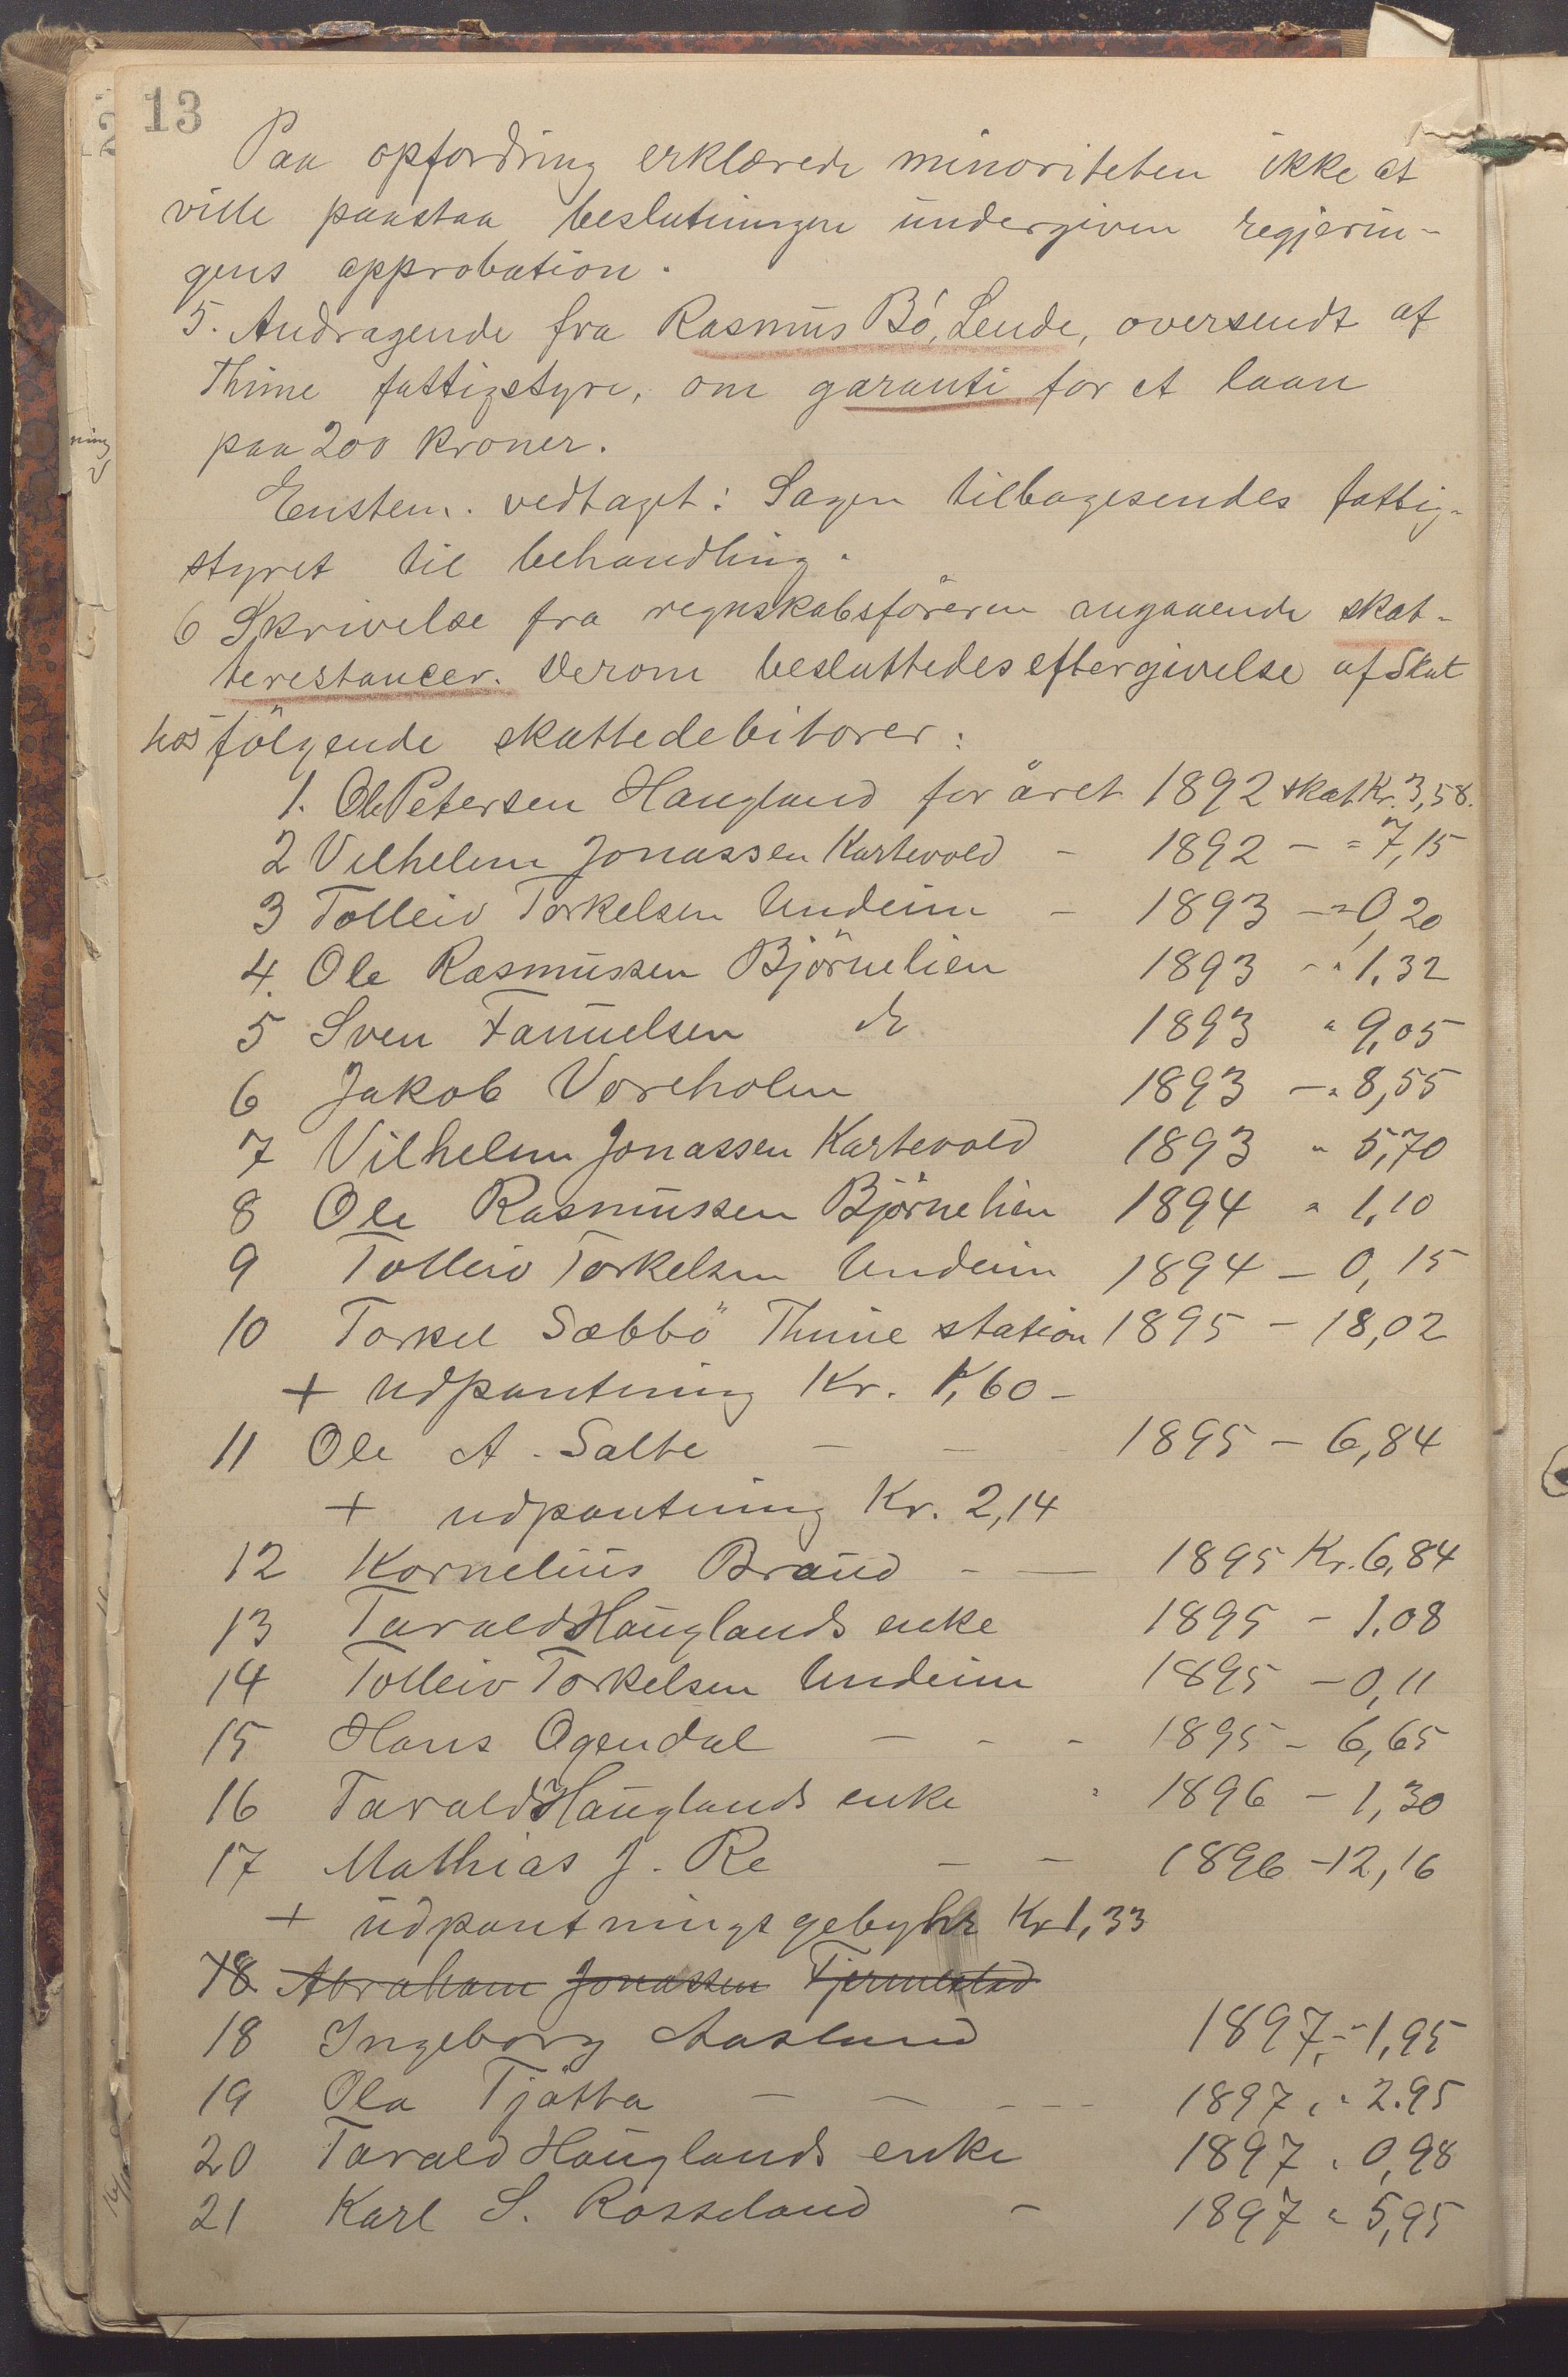 13
Paa opfordring erklærede minoriteten ikke at
ville paastaa beslutningen undergiven regjerin-
gens approbation.
5. Andragende fra Rasmus Bö, Lende, oversendt af
Thime fattigstyre, om garanti for et laan
paa 200 kroner.
Enstem. vedtaget: Sagen tilbagesendes fattig-
styret til behandling.
6 Skrivelse fra regnskabsföreren angaaende skat-
terestancer. Derom besluttedes eftergivelse af Skat
hos fölgende skattedebitorer:
1. Ole Petersen Haugland for året 1892 skat Kr. 3,58.
2 Vilhelm Jonassen Kartevold - 1892 - " 7,15
3 Tolleiv Torkelsen Undeim - 1893 - " 0,20
4. Ole Rasmussen Björnelien 1893 - " 1,32
5 Sven Fanuelsen do 1893 " 9,05
6 Jakob Voreholm 1893 - " 8,55
7 Vilhelm Jonassen Kartevold 1893 " 5,70
8 Ole Rasmussen Björnelien 1894 " 1,10
9 Tolleiv Torkelsen Undeim 1894 - 0,15
10 Torkel Sæbbö Thime station 1895 - 18,02
+ udpantning Kr. 1,60 -
11 Ole A. Salte - - 1895 - 6,84
+ udpantning Kr. 2,14
12 Kornelius Braud - - 1895 Kr. 6,84
13 Tarald Hauglands enke 1895 - 1.08
14 Tolleiv Torkelsen Undeim 1895 - 0,11
15 Hans Ogendal - - - 1895 - 6,65
16 Tarald Hauglands enke " 1896 - 1,30
17 Mathias J. Re - - 1896 - 12,16
+ udpantningsgebyhr Kr 1,33
18 Abraham Jonassen Tjermestad
18 Ingeborg Aasland 1897, - " 1,95
19 Ola Tjötta - - - - - 1897, " 2.95
20 Tarald Hauglands enke 1897 " 0,98
21 Karl S. Rosseland - 1897 " 5,95